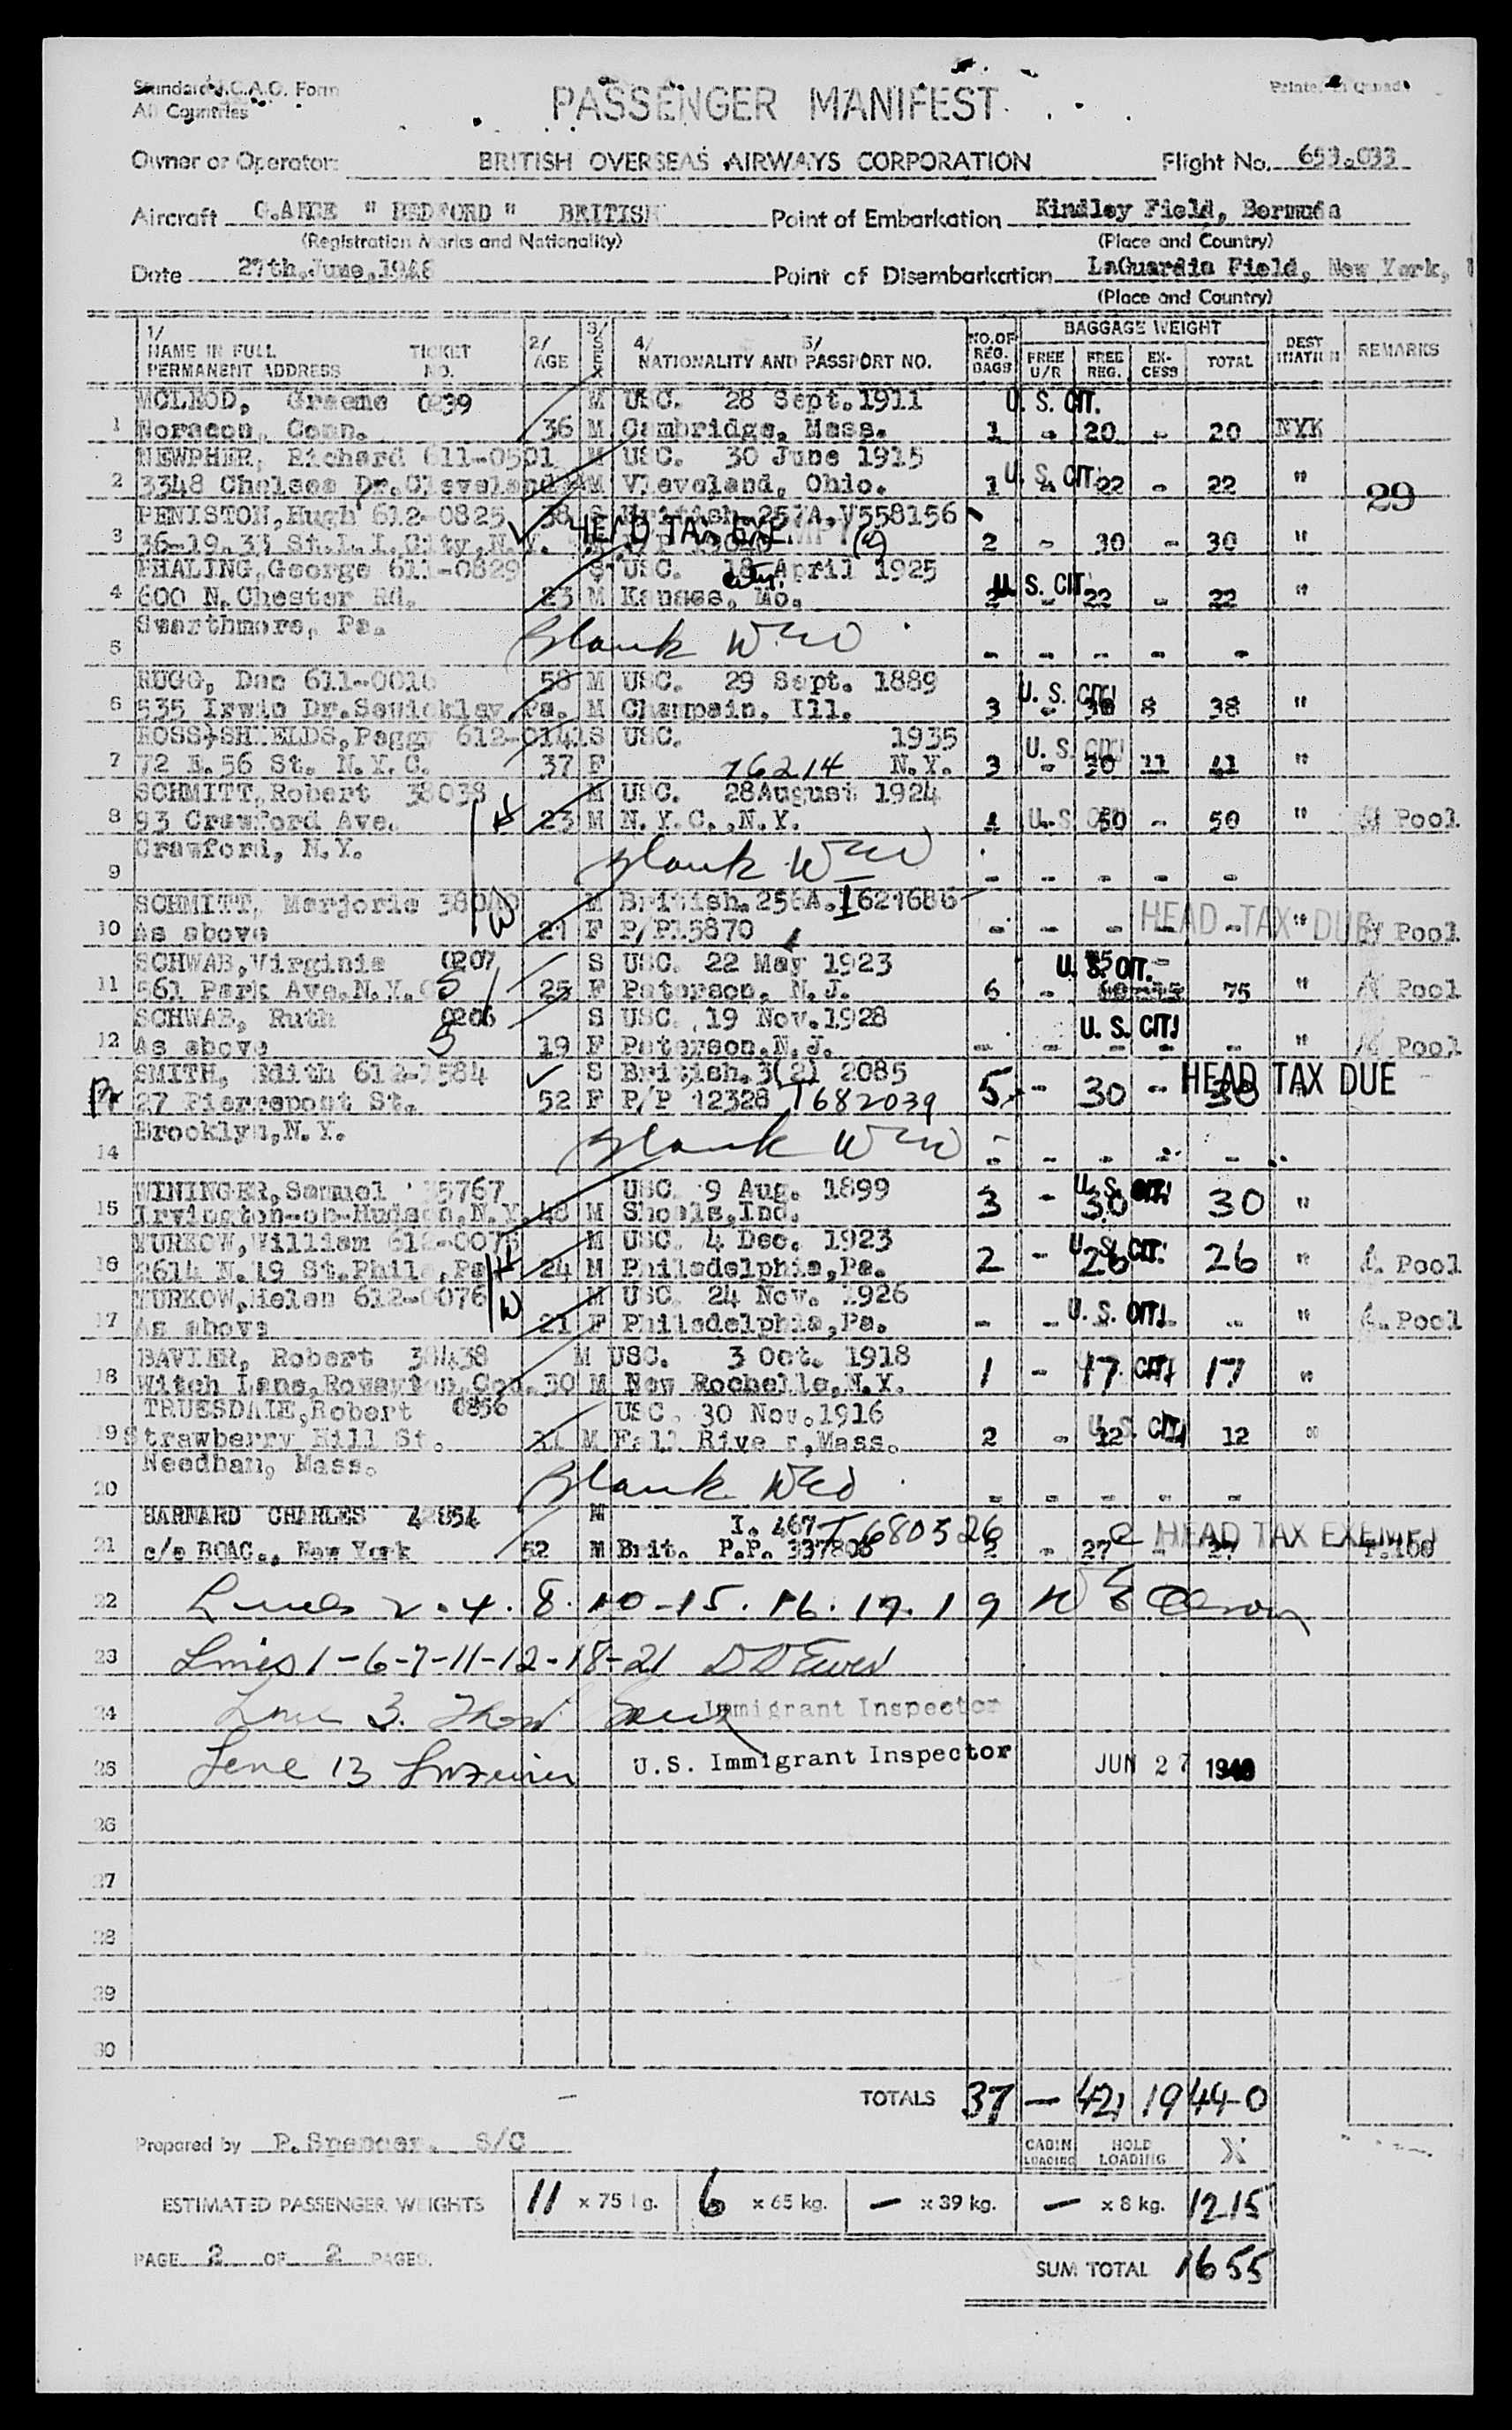 Standard I.C.A.O. Form
All Countries
PASSENGER MANIFEST
Printed in Canada
Owner or Operator: BRITISH OVERSEAS AIRWAYS CORPORATION Flight No. 653.033
Aircraft " BEDFORD " BRITISH Point of Embarkation Kindley Field, Bermuda
(Registration Marks and Nationality) (Place and Country)
Date 27th.June,1948 Point of Disembarkation LaGuardia Field, New York,
(Place and Country)
1/ NAME IN FULL PERMANENT ADDRESS TICKET NO. 2/ AGE 3/ SEX 4/ 5/ NATIONALITY AND PASSPORT NO. NO.OF REG. BAGS BAGGAGE WEIGHT FREE U/R FREE REG. EX-CESS TOTAL DEST INATION REMARKS
MCLEOD, Graeme 0239 M USC. 28 Sept.1911 U. S. CIT.
1 Noracon, Conn. 36 M Cambridge, Mass. 1 - 20 - 20 NYK
NEWPHER, Richard 611-0501 M USC. 30 June 1915
2 3348 Chelsea Dr.Cleveland M Vleveland, Ohio. 1 U. S. CIT. - 22 - 22 " 29
PENISTON,Hugh 612-0825 38 S British.257A.V558156
3 36-19.33 St.L.I.City,N.Y. HEAD TAX EXEMPT (2) 2 - 30 - 30 "
PHALING,George 611-0829 S USC. 18 April 1925
4 600 N.Chester Rd. 23 M Kansas, City, Mo. 2 U. S. CIT. - 22 - 22 "
Swarthmore, Pa.
5 Blank - - - - -
RUGG, Dan 611-0010 58 M USC. 29 Sept. 1889
6 535 Irwin Dr.Sewickley Pa. M Champain, Ill. 3 U. S. CIT! - 30 8 38 "
ROSS-SHIELDS,Peggy 612-0141 S USC. 1935
7 72 E.56 St. N.Y.C. 37 F 76214 N.Y. 3 U. S. CIT! - 30 11 41 "
SCHMITT,Robert 38038 M USC. 28August 1924
8 93 Crawford Ave. H 23 M N.Y.C.,N.Y. 4 U.S. CIT - 50 - 50 " Pool
Crawford, N.Y.
9 Blank - - - - -
SCHMITT, Marjorie W M British.256A.I621686
10 As above 21 F P/P15870 - - - - - HEAD TAX DUE " Pool
SCHWAB,Virginia 0207 S USC. 22 May 1923 U. S. CIT.
11 561 Park Ave.N.Y.C S 25 F Paterson, N.J. 6 - 75 " Pool
SCHWAB, Ruth 0206 S USC. 19 Nov.1928 U. S. CIT!
12 As above S 19 F Paterson.N.J. - - - - - " Pool
SMITH, Edith 612-1584 S British.3(2) 2085 HEAD TAX DUE
27 Pierrepont St. 52 F P/P 12328 T682039 5 - 30 - 30
Brooklyn,N.Y.
14 Blank - - - - -
WININGER,Samuel 35767 USC. 9 Aug. 1899 U. S. CIT!
15 Irvington-on-Hudson,N.Y. 48 M Shoals,Ind. 3 - 30 30 "
YURKOW,William 612-0075 M USC. 4 Dec. 1923 U. S. CIT!
16 2614 N.19 St.Phila,Pa H 24 M Philadelphia,Pa. 2 - 26 26 " Pool
YURKOW,Helen 612-0076 M USC. 24 Nov. 1926
17 As above W 21 F Philadelphia,Pa. - - U. S. CIT! - - " Pool
BAVIER, Robert 38438 M USC. 3 Oct. 1918
18 Witch Lane,Rowayton,Con. 30 M New Rochelle,N.Y. 1 - 17 CIT! 17 "
TRUESDALE,Robert 0856 USC. 30 Nov.1916
19 Strawberry Hill St. 31 M Fall River,Mass. 2 - U. S. CIT! 12 12 "
Needham, Mass.
20 Blank - - - - -
BARNARD CHARLES 42854 M I. 467 T680526 HEAD TAX EXEMPT
21 c/o BOAC., New York 52 M Brit. P.P. 337806 2 - 27 - 27 P.100
22 Lines 2.4.8.10-15.16.17.19
23 Lines 1-6-7-11-12-18-21
24 Line 3. Immigrant Inspector
25 Line 13 U.S. Immigrant Inspector JUN 27 1948
26
27
28
29
30
TOTALS 37 - 421 19 440
Prepared by P.Spencer. S/C CABIN LOADING HOLD LOADING X
ESTIMATED PASSENGER WEIGHTS 11 x 75 kg. 6 x 65 kg. - x 39 kg. - x 8 kg. 1215
PAGE 2 OF 2 PAGES.
SUM TOTAL 1655